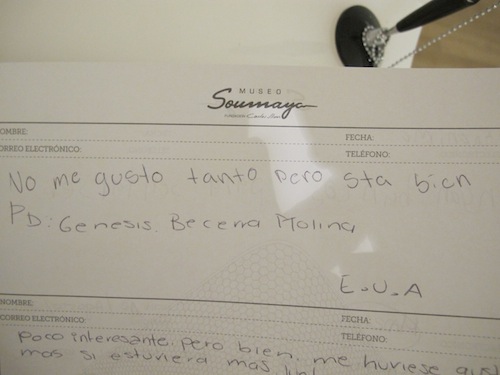 MUSEO
Soumaya
FUNDACIÓN Carlos Slim
OMBRE:
FECHA:
ORREO ELECTRÓNICO:
TELÉFONO:
No me gusto tanto pero sta bien
PD: Genesis. Becerra Molina
E.U.A
NOMBRE:
FECHA:
CORREO ELECTRÓNICO:
TELÉFONO:
poco interesante. pero bien. me huviese gus
mas si estuviera mas